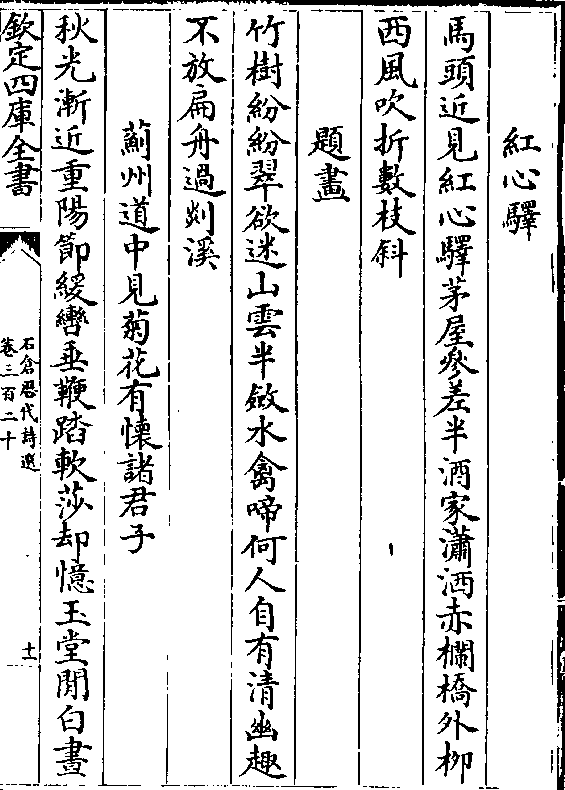 紅心驛
馬頭近見紅心驛茅屋參差半酒家瀟洒赤欄橋外栁
西風吹折數枝斜
題畫
竹樹紛紛翠欲迷山雲半斂水禽啼何人自有清幽趣
不放扁舟過剡溪
薊州道中見菊花有懐諸君子
秋光漸近重陽節緩轡垂鞭踏軟莎却憶玉堂閒白晝
欽定四庫全書
石倉歷代詩選
卷三百二十
十一